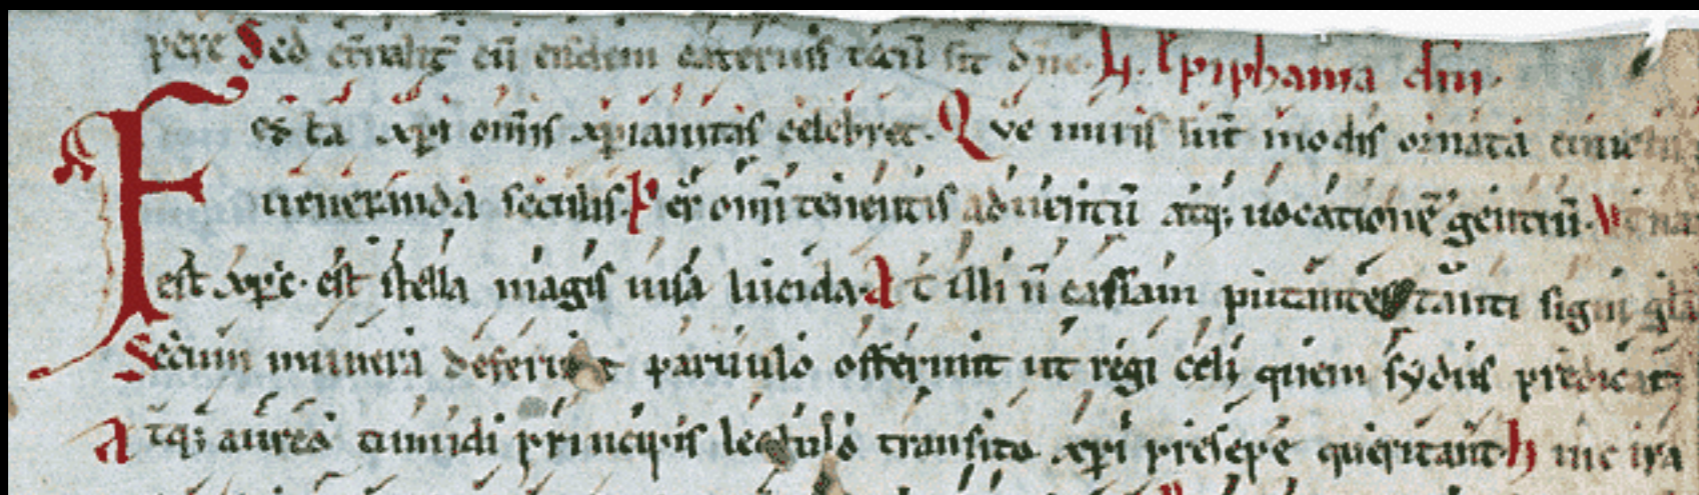 pere Sed eñ eiusdem sit dñe. Epiphania dñi.
Festa xpi om̄is xp̄ianitas celebret. Que miris sūt modis ornata cunctis
ueneranda seculis. Per om̄itenentis aduentū atq; uocationē gentiū. Vt na
est xpc̄. est stella magis uisa lucida. At illi ñ cassam putantes tanti signi gla
Secum munera deferūt paruulo offerunt ut regi celi quem sydus predicat
Atq; aureo tumidi principis lectulo transito xpi presepe queritant. hinc ira